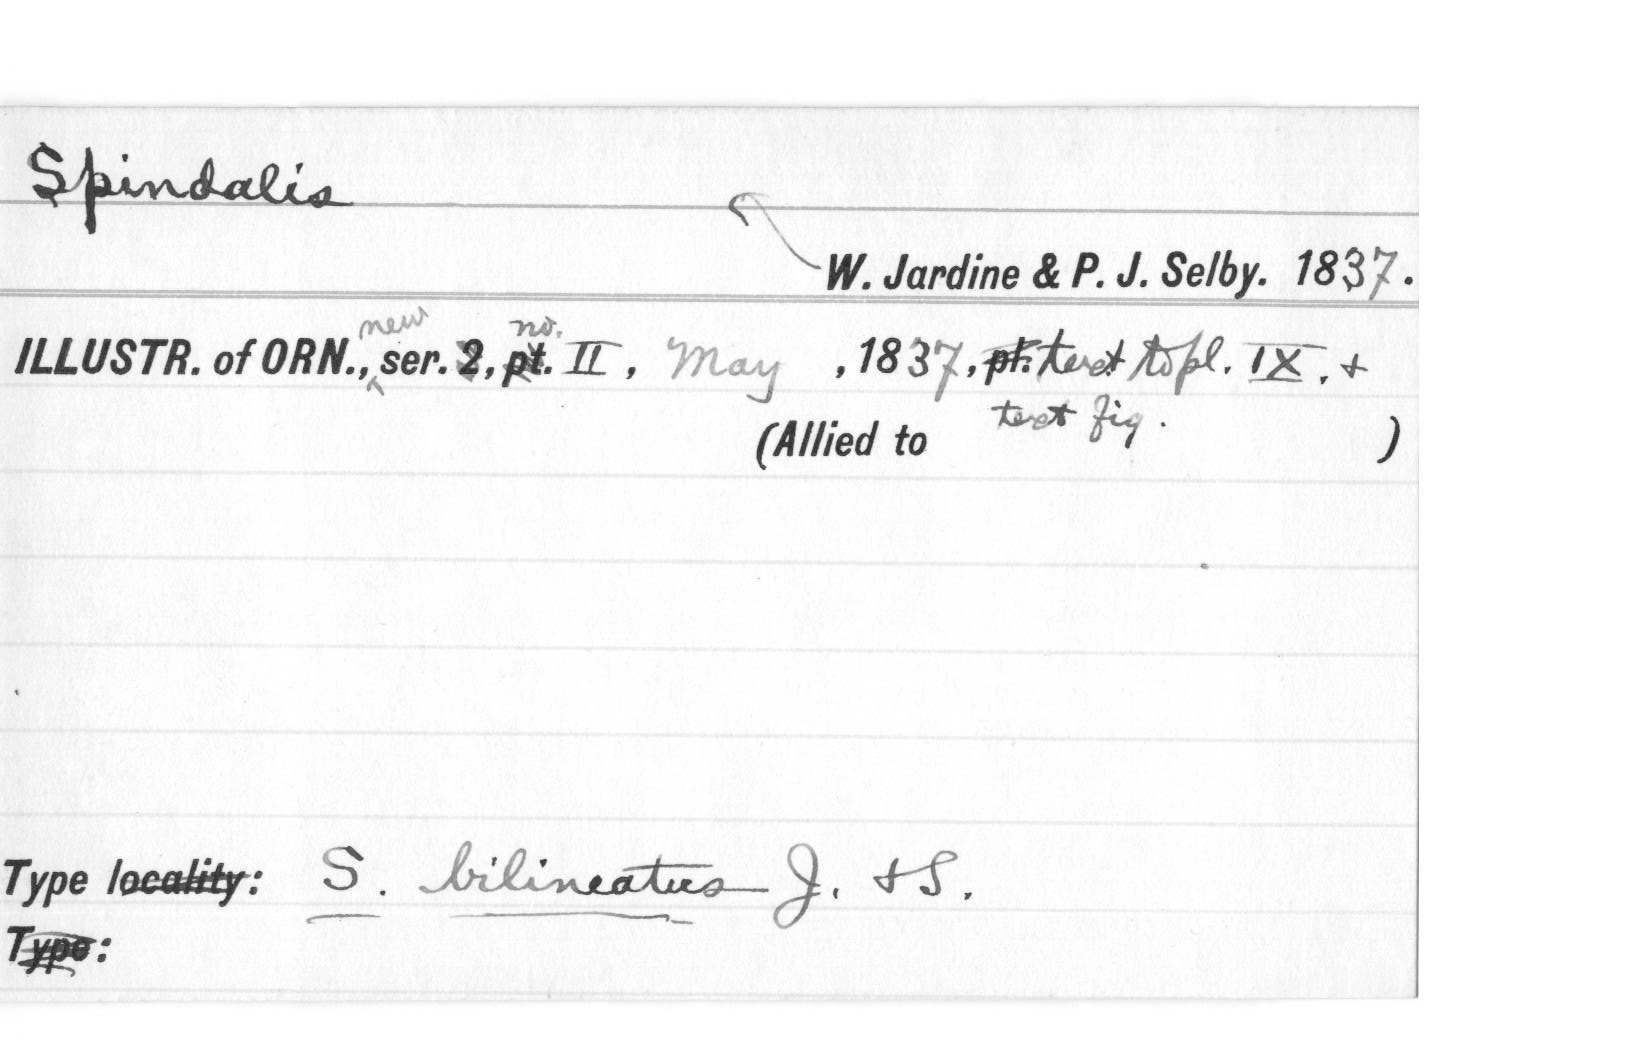 Spindalis
W. Jardine & P. J. Selby. 1837.
new no.
ILLUSTR. of ORN., ser. 2, pt. II, May, 1837, pt. text to pl. IX. +
text fig.
(Allied to )
Type locality: S. bilineatus J. + S.
Type: